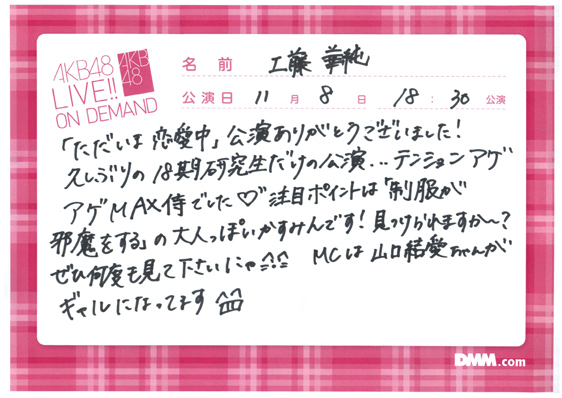 AKB48
LIVE!!
ON DEMAND
AKB
48
名前 工藤 華純
公演日 11月8日 18:30公演
「ただいま 恋愛中」公演ありがとうございました!
久しぶりの18期研究生だけの公演...テンションアゲ
アゲMAX侍でした♡注目ポイントは「制服が
邪魔をする」の大人っぽいかすみんです!見つけられますか〜?
ぜひ何度も見て下さいにゃ MCは山口結愛ちゃんが
ギャルになってます
DMM.com